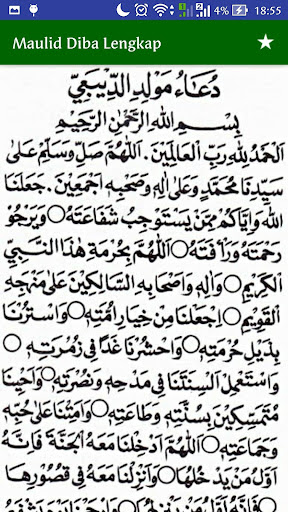 4% 18:55
Maulid Diba Lengkap
دُعَاءُ مَوْلِدِ الدِّيْبَعِيِّ
بِسْمِ اللهِ الرَّحْمٰنِ الرَّحِيْمِ
اَلْحَمْدُ لِلّٰهِ رَبِّ الْعَالَمِيْنَ. اَللّٰهُمَّ صَلِّ وَسَلِّمْ عَلٰى
سَيِّدِنَا مُحَمَّدٍ وَعَلٰى اٰلِهِ وَصَحْبِهِ اَجْمَعِيْنَ. جَعَلَنَا
اللهُ وَاِيَّاكُمْ مِمَّنْ يَسْتَوْجِبُ شَفَاعَتَهُ○ وَيَرْجُوْ
رَحْمَتَهُ وَرَأْفَتَهُ○ اَللّٰهُمَّ بِحُرْمَةِ هٰذَا النَّبِيِّ
الْكَرِيْمِ○ وَاٰلِهِ وَاَصْحَابِهِ السَّالِكِيْنَ عَلٰى مَنْهَجِهِ
الْقَوِيْمِ○ اِجْعَلْنَا مِنْ خِيَارِ اُمَّتِهِ○ وَاسْتُرْنَا
بِذَيْلِ حُرْمَتِهِ○ وَاحْشُرْنَا غَدًا فِيْ زُمْرَتِهِ○
وَاسْتَعْمِلْ اَلْسِنَتَنَا فِيْ مَدْحِهِ وَنُصْرَتِهِ○ وَاَحْيِنَا
مُتَمَسِّكِيْنَ بِسُنَّتِهِ وَطَاعَتِهِ○ وَاَمِتْنَا عَلٰى حُبِّهِ
وَجَمَاعَتِهِ○ اَللّٰهُمَّ اَدْخِلْنَا مَعَهُ الْجَنَّةَ○ فَاِنَّهُ
اَوَّلُ مَنْ يَدْخُلُهَا○ وَاَنْزِلْنَا مَعَهُ فِيْ قُصُوْرِهَا